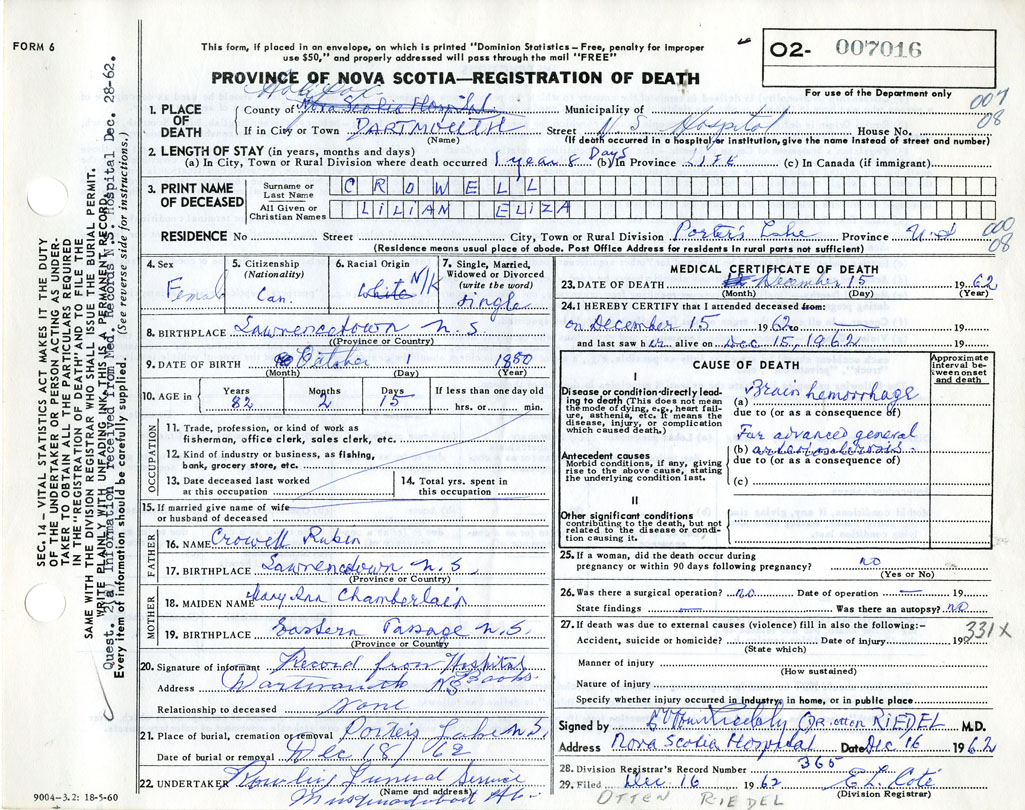 FORM 6
This form, if placed in an envelope, on which is printed "Dominion Statistics – Free, penalty for improper
use $50," and properly addressed will pass through the mail "FREE"
O2- 007016
For use of the Department only
PROVINCE OF NOVA SCOTIA—REGISTRATION OF DEATH
007
08
1. PLACE OF DEATH
Halifax
County of Nova Scotia Hospital Municipality of
If in City or Town DARTMOUTH Street N S Hospital House No.
(Name) (If death occurred in a hospital or institution, give the name instead of street and number)
2. LENGTH OF STAY (in years, months and days)
(a) In City, Town or Rural Division where death occurred 1 year 8 Days (b) In Province LIFE (c) In Canada (if immigrant)
3. PRINT NAME OF DECEASED
Surname or Last Name CROWELL
All Given or Christian Names LILIAN ELIZA
RESIDENCE No Street City, Town or Rural Division Porter's Lake Province N.S
000
08
(Residence means usual place of abode. Post Office Address for residents in rural parts not sufficient)
4. Sex Femal
5. Citizenship (Nationality) Can.
6. Racial Origin White N/K
7. Single, Married, Widowed or Divorced (write the word) single
8. BIRTHPLACE Lawrencetown N.S
(Province or Country)
9. DATE OF BIRTH October 1 1880
(Month) (Day) (Year)
10. AGE in Years 82 Months 2 Days 15 If less than one day old hrs. or min.
OCCUPATION
11. Trade, profession, or kind of work as
fisherman, office clerk, sales clerk, etc.
12. Kind of industry or business, as fishing,
bank, grocery store, etc.
13. Date deceased last worked
at this occupation
14. Total yrs. spent in
this occupation
15. If married give name of wife
or husband of deceased
FATHER
16. NAME Crowell Rubin
17. BIRTHPLACE Lawrencetown N.S
(Province or Country)
MOTHER
18. MAIDEN NAME Mary Ann Chamberlain
19. BIRTHPLACE Eastern Passage N.S.
(Province or Country)
20. Signature of informant Record from Hospital
Books
Address Dartmouth NS
Relationship to deceased None
21. Place of burial, cremation or removal Porter's Lake N S
Date of burial or removal Dec 18/62
22. UNDERTAKER Funeral Service
(Name and address)
Musquodoboit
9004–3.2: 18-5-60
MEDICAL CERTIFICATE OF DEATH
23. DATE OF DEATH December 15 1962
(Month) (Day) (Year)
24. I HEREBY CERTIFY that I attended deceased from:
on December 15 1962 to — 19
and last saw her alive on Dec 15, 1962 19
CAUSE OF DEATH
Approximate interval between onset and death
I
Disease or condition directly leading to death (This does not mean the mode of dying, e.g., heart failure, asthenia, etc. It means the disease, injury, or complication which caused death.)
(a) Brain hemorrhage
due to (or as a consequence of)
Far advanced general
(b) arteriosclerosis
due to (or as a consequence of)
(c)
Antecedent causes
Morbid conditions, if any, giving rise to the above cause, stating the underlying condition last.
II
Other significant conditions
contributing to the death, but not related to the disease or condition causing it.
25. If a woman, did the death occur during
pregnancy or within 90 days following pregnancy? NO
(Yes or No)
26. Was there a surgical operation? NO Date of operation — 19
State findings — Was there an autopsy? NO
27. If death was due to external causes (violence) fill in also the following:–
331X
Accident, suicide or homicide? Date of injury 19
(State which)
Manner of injury
(How sustained)
Nature of injury
Specify whether injury occurred in industry, in home, or in public place
Signed by DR. otten RIEDEL M.D.
Address Nova Scotia Hospital Date Dec 16 1962
28. Division Registrar's Record Number 365
29. Filed Dec 16 1962 E L Coté
(Division Registrar)
OTTEN RIEDEL
SEC. 14 – VITAL STATISTICS ACT MAKES IT THE DUTY
OF THE UNDERTAKER OR PERSON ACTING AS UNDER-
TAKER TO OBTAIN ALL THE PARTICULARS REQUIRED
IN THE "REGISTRATION OF DEATH" AND TO FILE THE
SAME WITH THE DIVISION REGISTRAR WHO SHALL ISSUE THE BURIAL PERMIT.
WRITE PLAINLY WITH UNFADING INK, THIS IS A PERMANENT RECORD.
Quest. 2(a) Information received from Med. Records N.S. Hospital Dec. 28-62.
Every item of information should be carefully supplied. (See reverse side for instructions.)